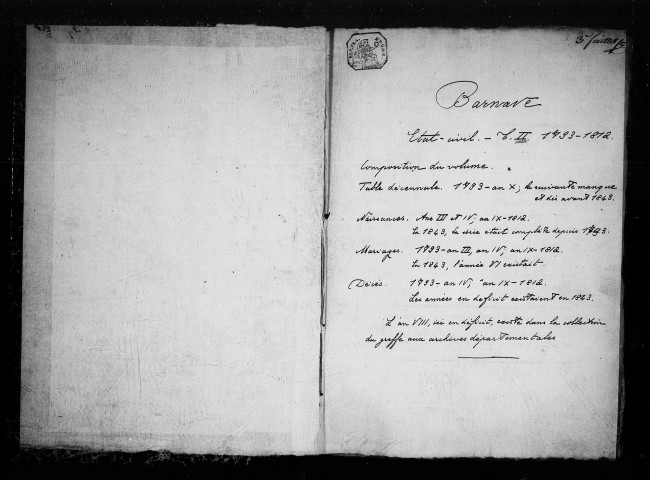 3e feuillet
Barnave
Etat-civil. - T. II 1793-1812.
Composition du volume.
Table décennale. 1793-an X; la suivante manque
et dès avant 1843.
Naissances. Ans III et IV, an IX-1812.
En 1843, la série était complète depuis 1793.
Mariages. 1793-an III, an IV, an IX-1812.
En 1843, l'année VI existait.
Décès. 1793-an IV, an IX-1812.
Les années en déficit existaient en 1843.
L'an VIII, ici en déficit, existe dans la collection
du greffe aux archives départementales